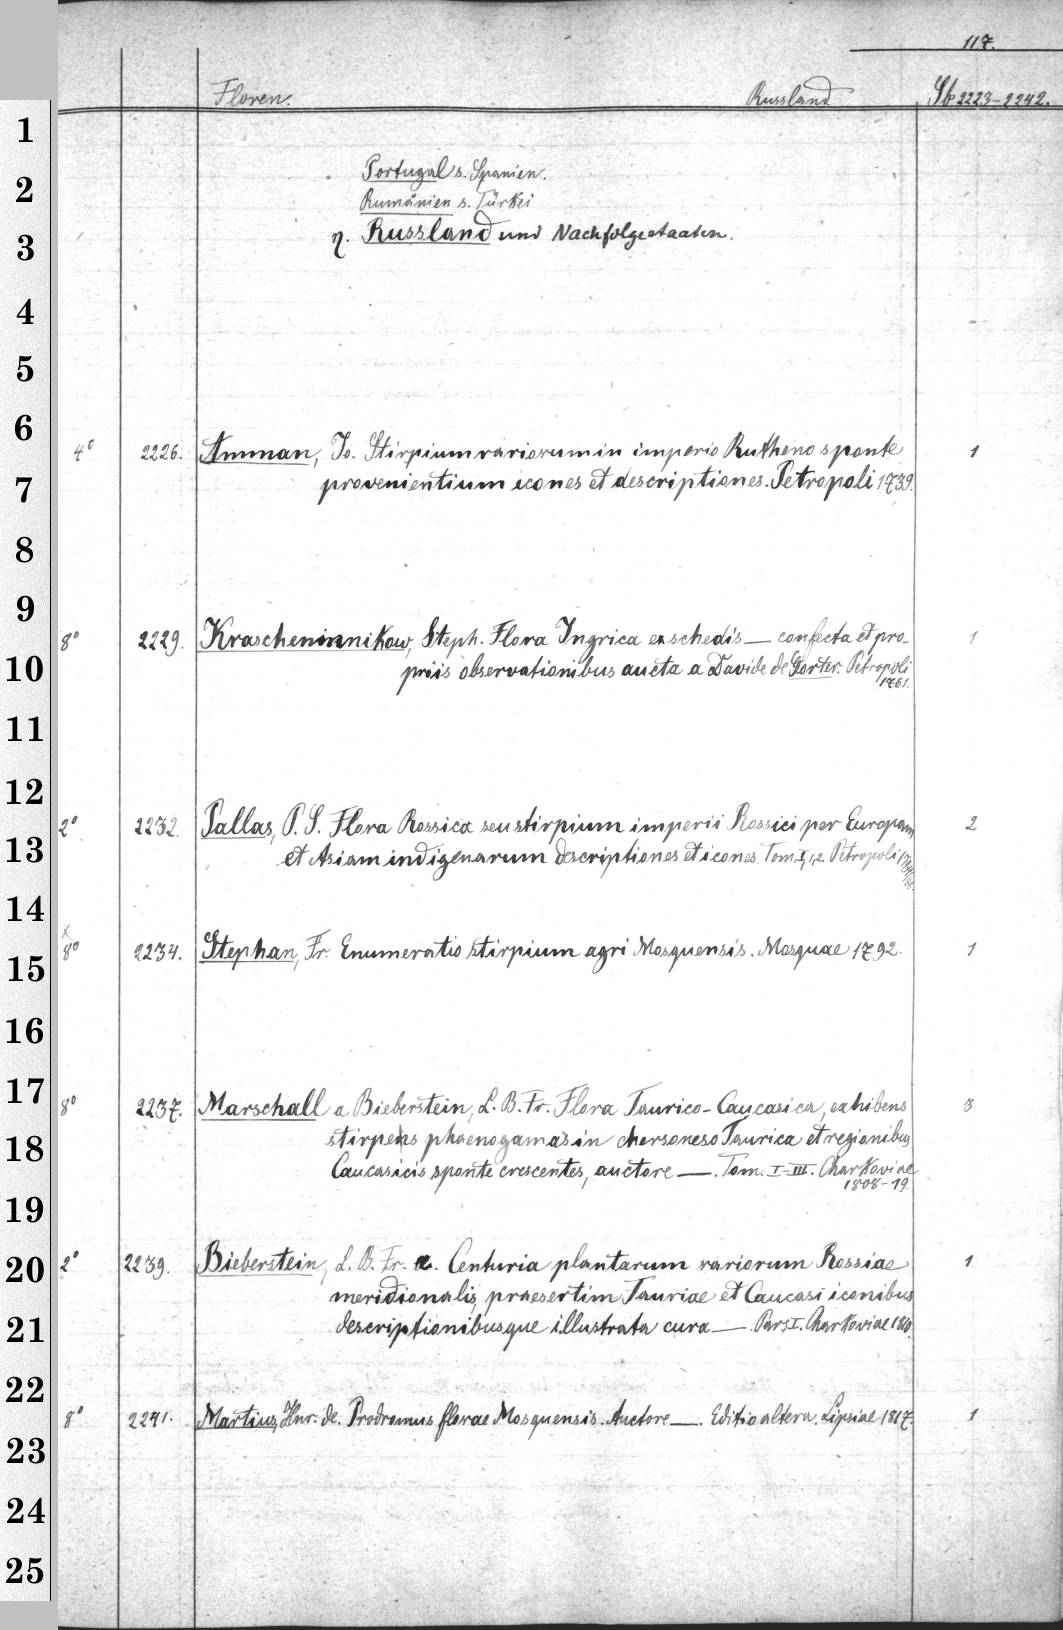 117.
Floren. Russland Sb 2223-2242.
1
Portugal s. Spanien.
2
Rumänien s. Türkei
3
η. Russland und Nachfolgestaaten.
4
5
6
4° 2226. Amman, Jo. Stirpium rariorum in imperio Rutheno sponte 1
7
provenientium icones et descriptiones. Petropoli 1739.
8
9
8° 2229. Krascheninnikow, Steph. Flora Ingrica ex schedis — confecta et pro 1
10
priis observationibus aucta a Davide de Gorter. Petropoli
1761.
11
12
2° 2232. Pallas, P. S. Flora Rossica seu stirpium imperii Rossici per Europam 2
13
et Asiam indigenarum descriptiones et icones. Tom. I, 1,2. Petropoli
14
x
8° 2234. Stephan, Fr. Enumeratio stirpium agri Mosquensis. Mosquae 1792. 1
15
16
17
8° 2237. Marschall a Bieberstein, L. B. Fr. Flora Taurico-Caucasica, exhibens 3
18
stirpens phaenogamas in chersoneso Taurica et regionibus
Caucasicis sponte crescentes, auctore —. Tom. I-III. Charkoviae
1808-19.
19
20
2° 2239. Bieberstein, L. B. Fr. a. Centuria plantarum rariorum Rossiae 1
meridionalis, praesertim Tauriae et Caucasi iconibus
21
descriptionibusque illustrata cura —. Pars I. Charkoviae 1810.
22
8° 2241. Martius, Hnr. de. Prodromus florae Mosquensis. Auctore —. Editio altera. Lipsiae 1817. 1
23
24
25